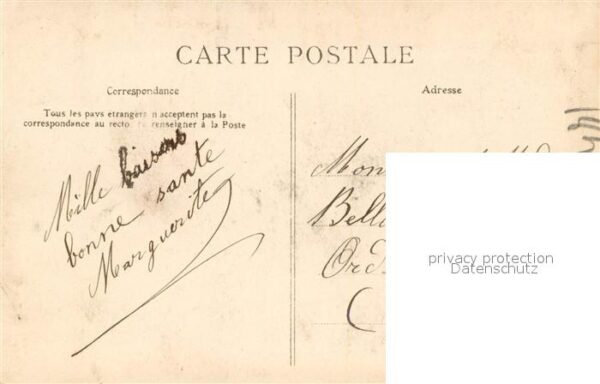 CARTE POSTALE
Correspondance
Adresse
Tous les pays etrangers n'acceptent pas la
correspondance au recto se renseigner à la Poste
Mille baisers
bonne sante
Marguerite
Bell
Ord
privacy protection
Datenschutz